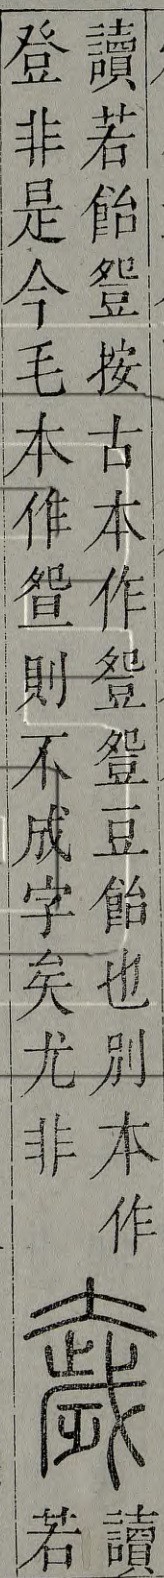 讀若飴𧯡按古本作𧯡𧯡豆飴也別本作
登非是今毛本作則不成字矣尤非
歲
讀
若